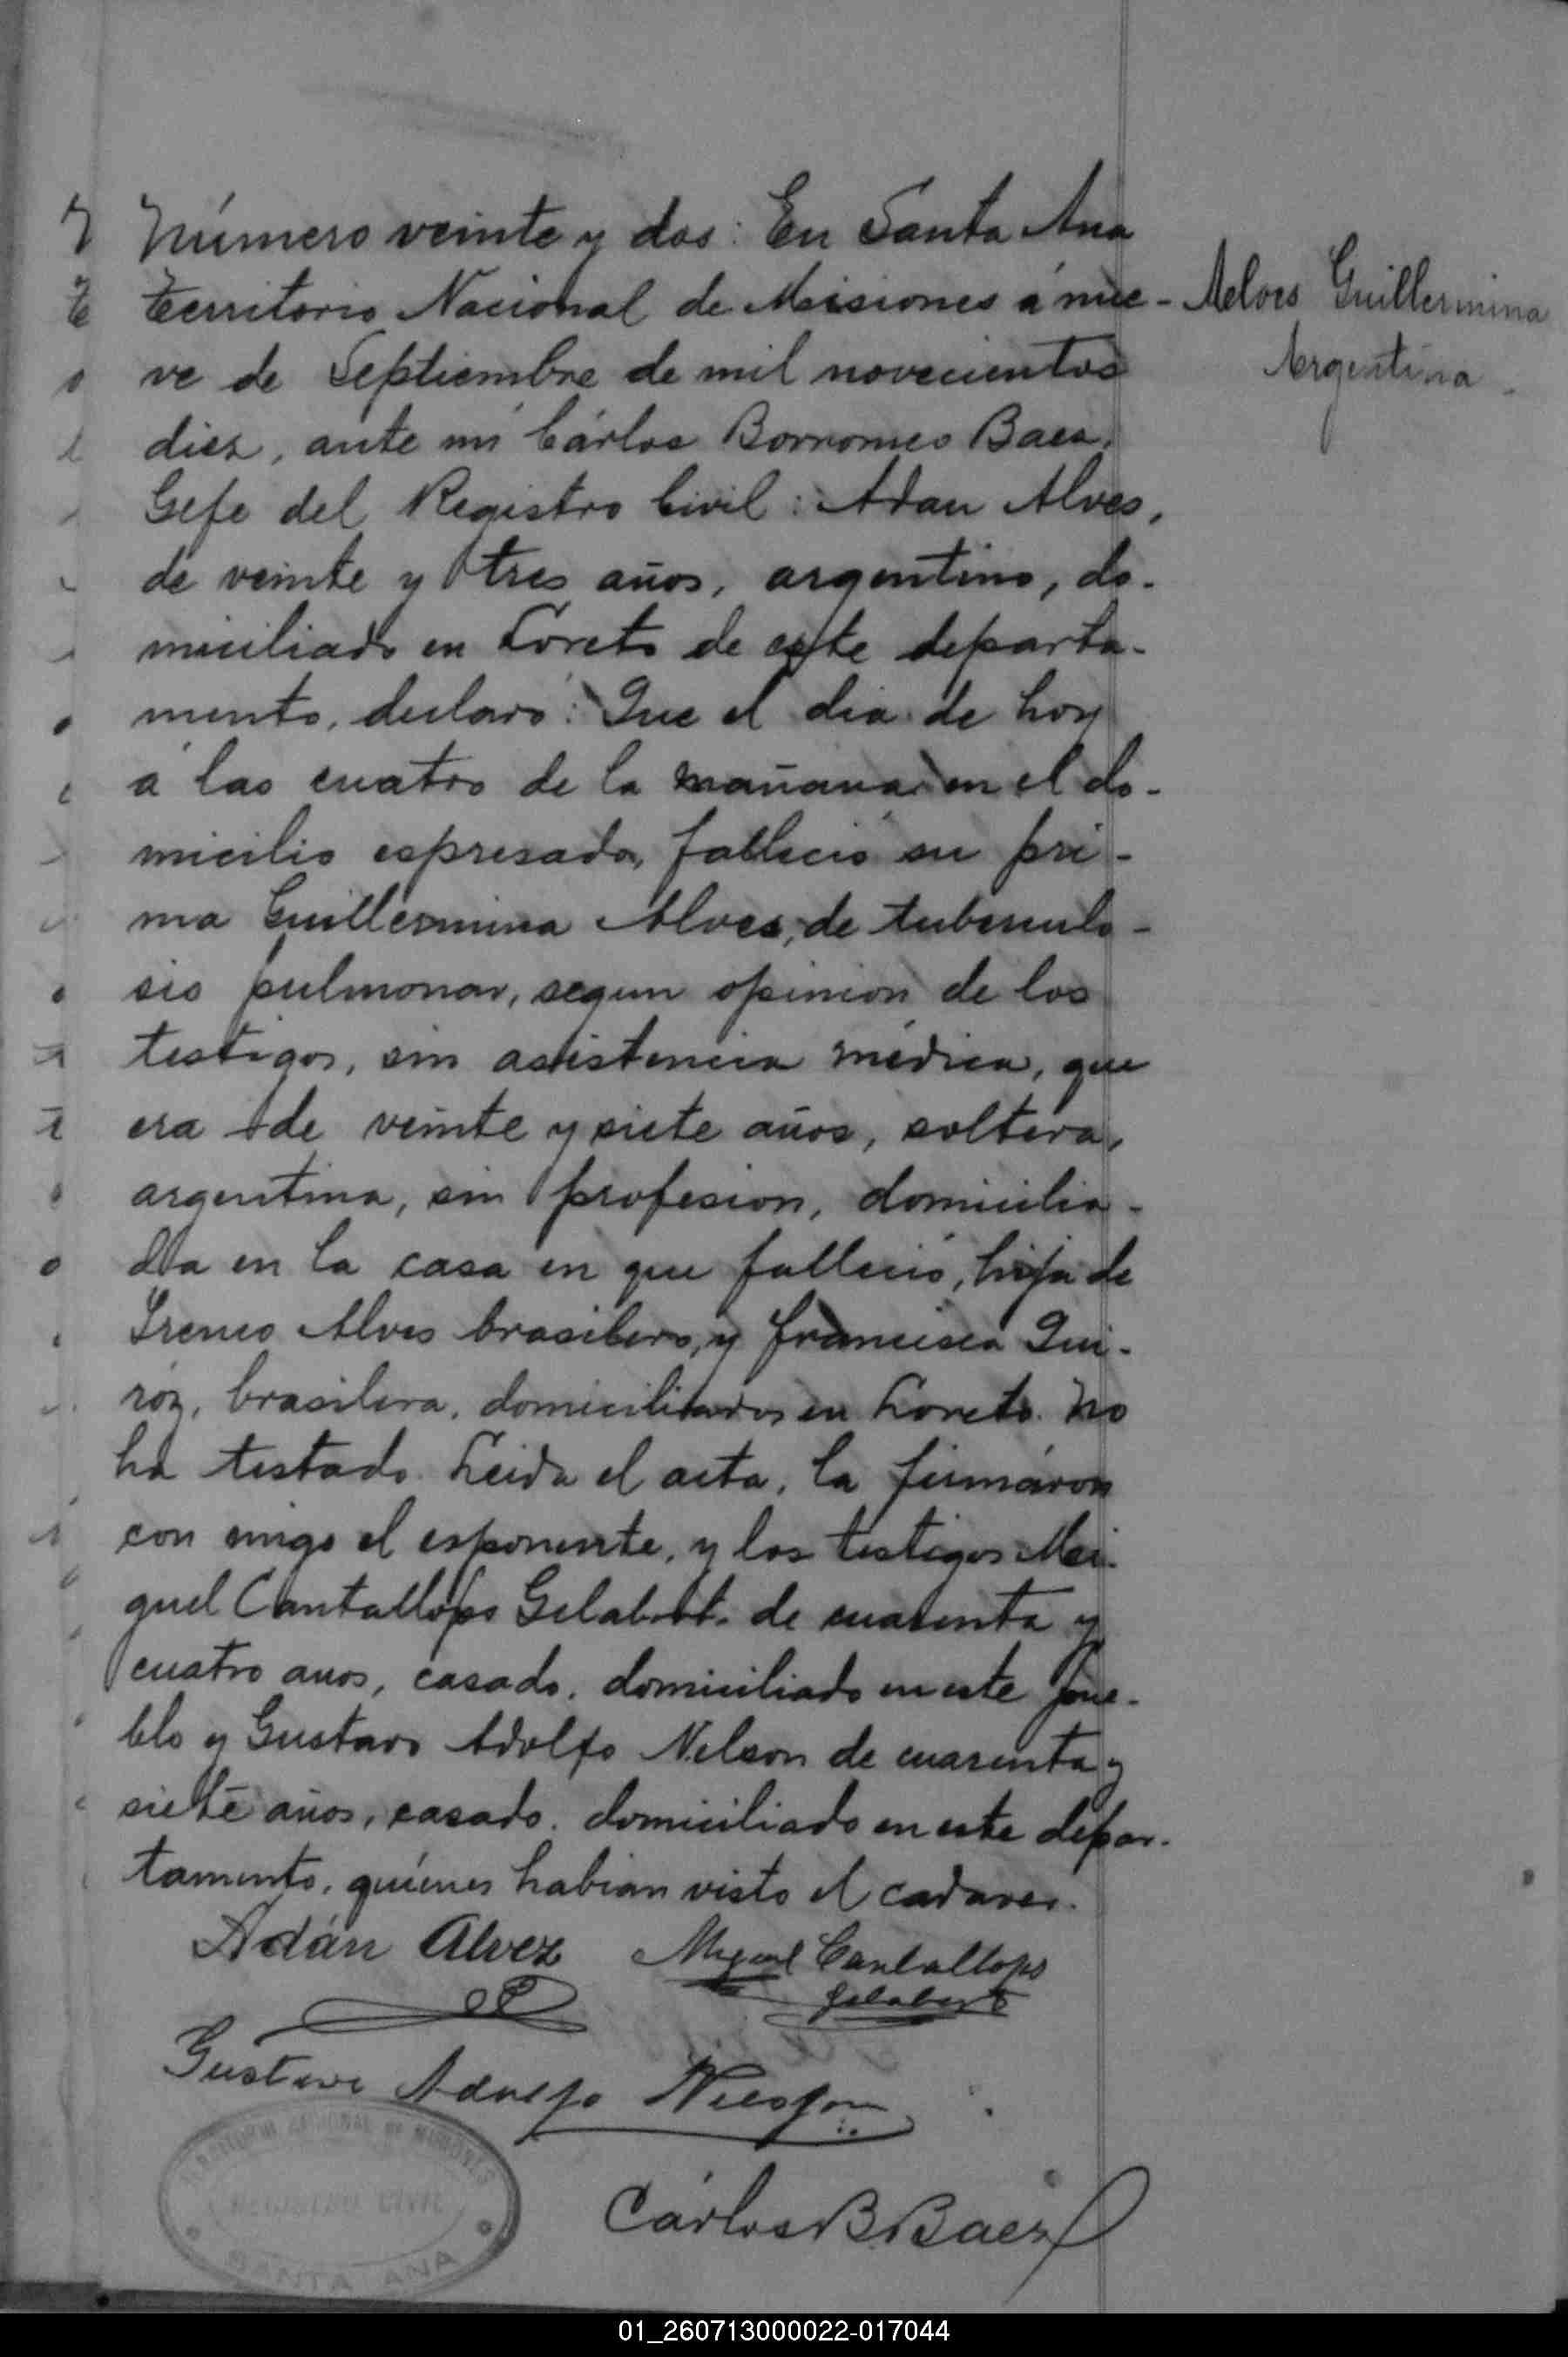 Número veinte y dos: En Santa Ana
territorio Nacional de Misiones á nue-
ve de Septiembre de mil novecientos
diez, ante mí Cárlos Borromeo Baez,
Gefe del Registro Civil: Adan Alves,
de veinte y tres años, argentino, do-
miciliado en Loreto de este departa-
mento, declaró: Que el dia de hoy
á las cuatro de la mañana en el do-
micilio espresado, falleció su pri-
ma Guillermina Alves, de tuberculo-
sis pulmonar, segun opinion de los
testigos, sin asistencia médica, que
era de veinte y siete años, soltera,
argentina, sin profesion, domicilia-
da en la casa en que falleció, hija de
Ireneo Alves brasilero, y Francisca Qui-
róz, brasilera, domiciliados en Loreto. No
ha testado. Leida el acta, la firmáron
con migo el esponente, y los testigos Mi-
guel Cantallops Gelabert. de cuarenta y
cuatro anos, casado, domiciliado en este pue-
blo y Gustavo Adolfo Nelson de cuarenta y
siete años, casado. domiciliado en este depar-
tamento, quiénes habian visto el cadaver.
Alves Guillermina
Argentina
Adán Alvez
Miguel Cantallops
Gelabert
Gustavo Adolfo
Cárlos B. Baez
TERRITORIO NACIONAL DE MISIONES
REGISTRO CIVIL
SANTA ANA
01_260713000022-017044